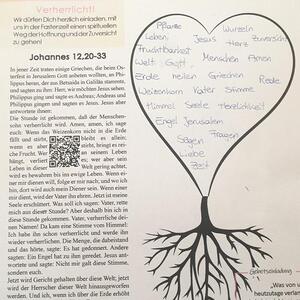 Verherrlicht!
Wir dürfen Dich herzlich einladen, mit
uns in der Fastenzeit einen spirituellen
Weg der Hoffnung und der Zuversicht
zu gehen!
Johannes 12,20-33
In jener Zeit traten einige Griechen, die beim Os-
terfest in Jerusalem Gott anbeten wollten, an Phi-
lippus heran, der aus Betsaida in Galiläa stammte,
und sagten zu ihm: Herr, wir möchten Jesus sehen.
Philippus ging und sagte es Andreas; Andreas und
Philippus gingen und sagten es Jesus. Jesus aber
antwortete ihnen:
Die Stunde ist gekommen, daß der Menschen-
sohn verherrlicht wird. Amen, amen, ich sage
euch: Wenn das Weizenkorn nicht in die Erde
fällt und stirbt, bleibt es allein;
wenn es aber stirbt, bringt es rei-
che Frucht. Wer an seinem Leben
hängt, verliert es; wer aber sein
Leben in dieser Welt gering achtet,
wird es bewahren bis ins ewige Leben. Wenn ei-
ner mir dienen will, folge er mir nach; und wo ich
bin, dort wird auch mein Diener sein. Wenn einer
mir dient, wird der Vater ihn ehren. Jetzt ist meine
Seele erschüttert. Was soll ich sagen: Vater, rette
mich aus dieser Stunde? Aber deshalb bin ich in
diese Stunde gekommen. Vater, verherrliche dei-
nen Namen! Da kam eine Stimme vom Himmel:
Ich habe ihn schon verherrlicht und werde ihn
wieder verherrlichen. Die Menge, die dabeistand
und das hörte, sagte: Es hat gedonnert. Andere
sagten: Ein Engel hat zu ihm geredet. Jesus ant-
wortete und sagte: Nicht mir galt diese Stimme,
sondern euch.
Jetzt wird Gericht gehalten über diese Welt; jetzt
wird der Herrscher dieser Welt hinausgeworfen
werden. Und ich, wenn ich über die Erde erhöht
Pflanze Wurzeln
Leben Jesus Herz Zuversicht
Fruchtbarkeit
Welt Gott Menschen Amen
Erde heilen Griechen Rede
Weizenkorn Vater Stimme
Himmel Seele Herrlichkeit
Engel Jerusalem
Sagen Fragen
Liebe
Zeit
"Was von u
heutzutage verlan